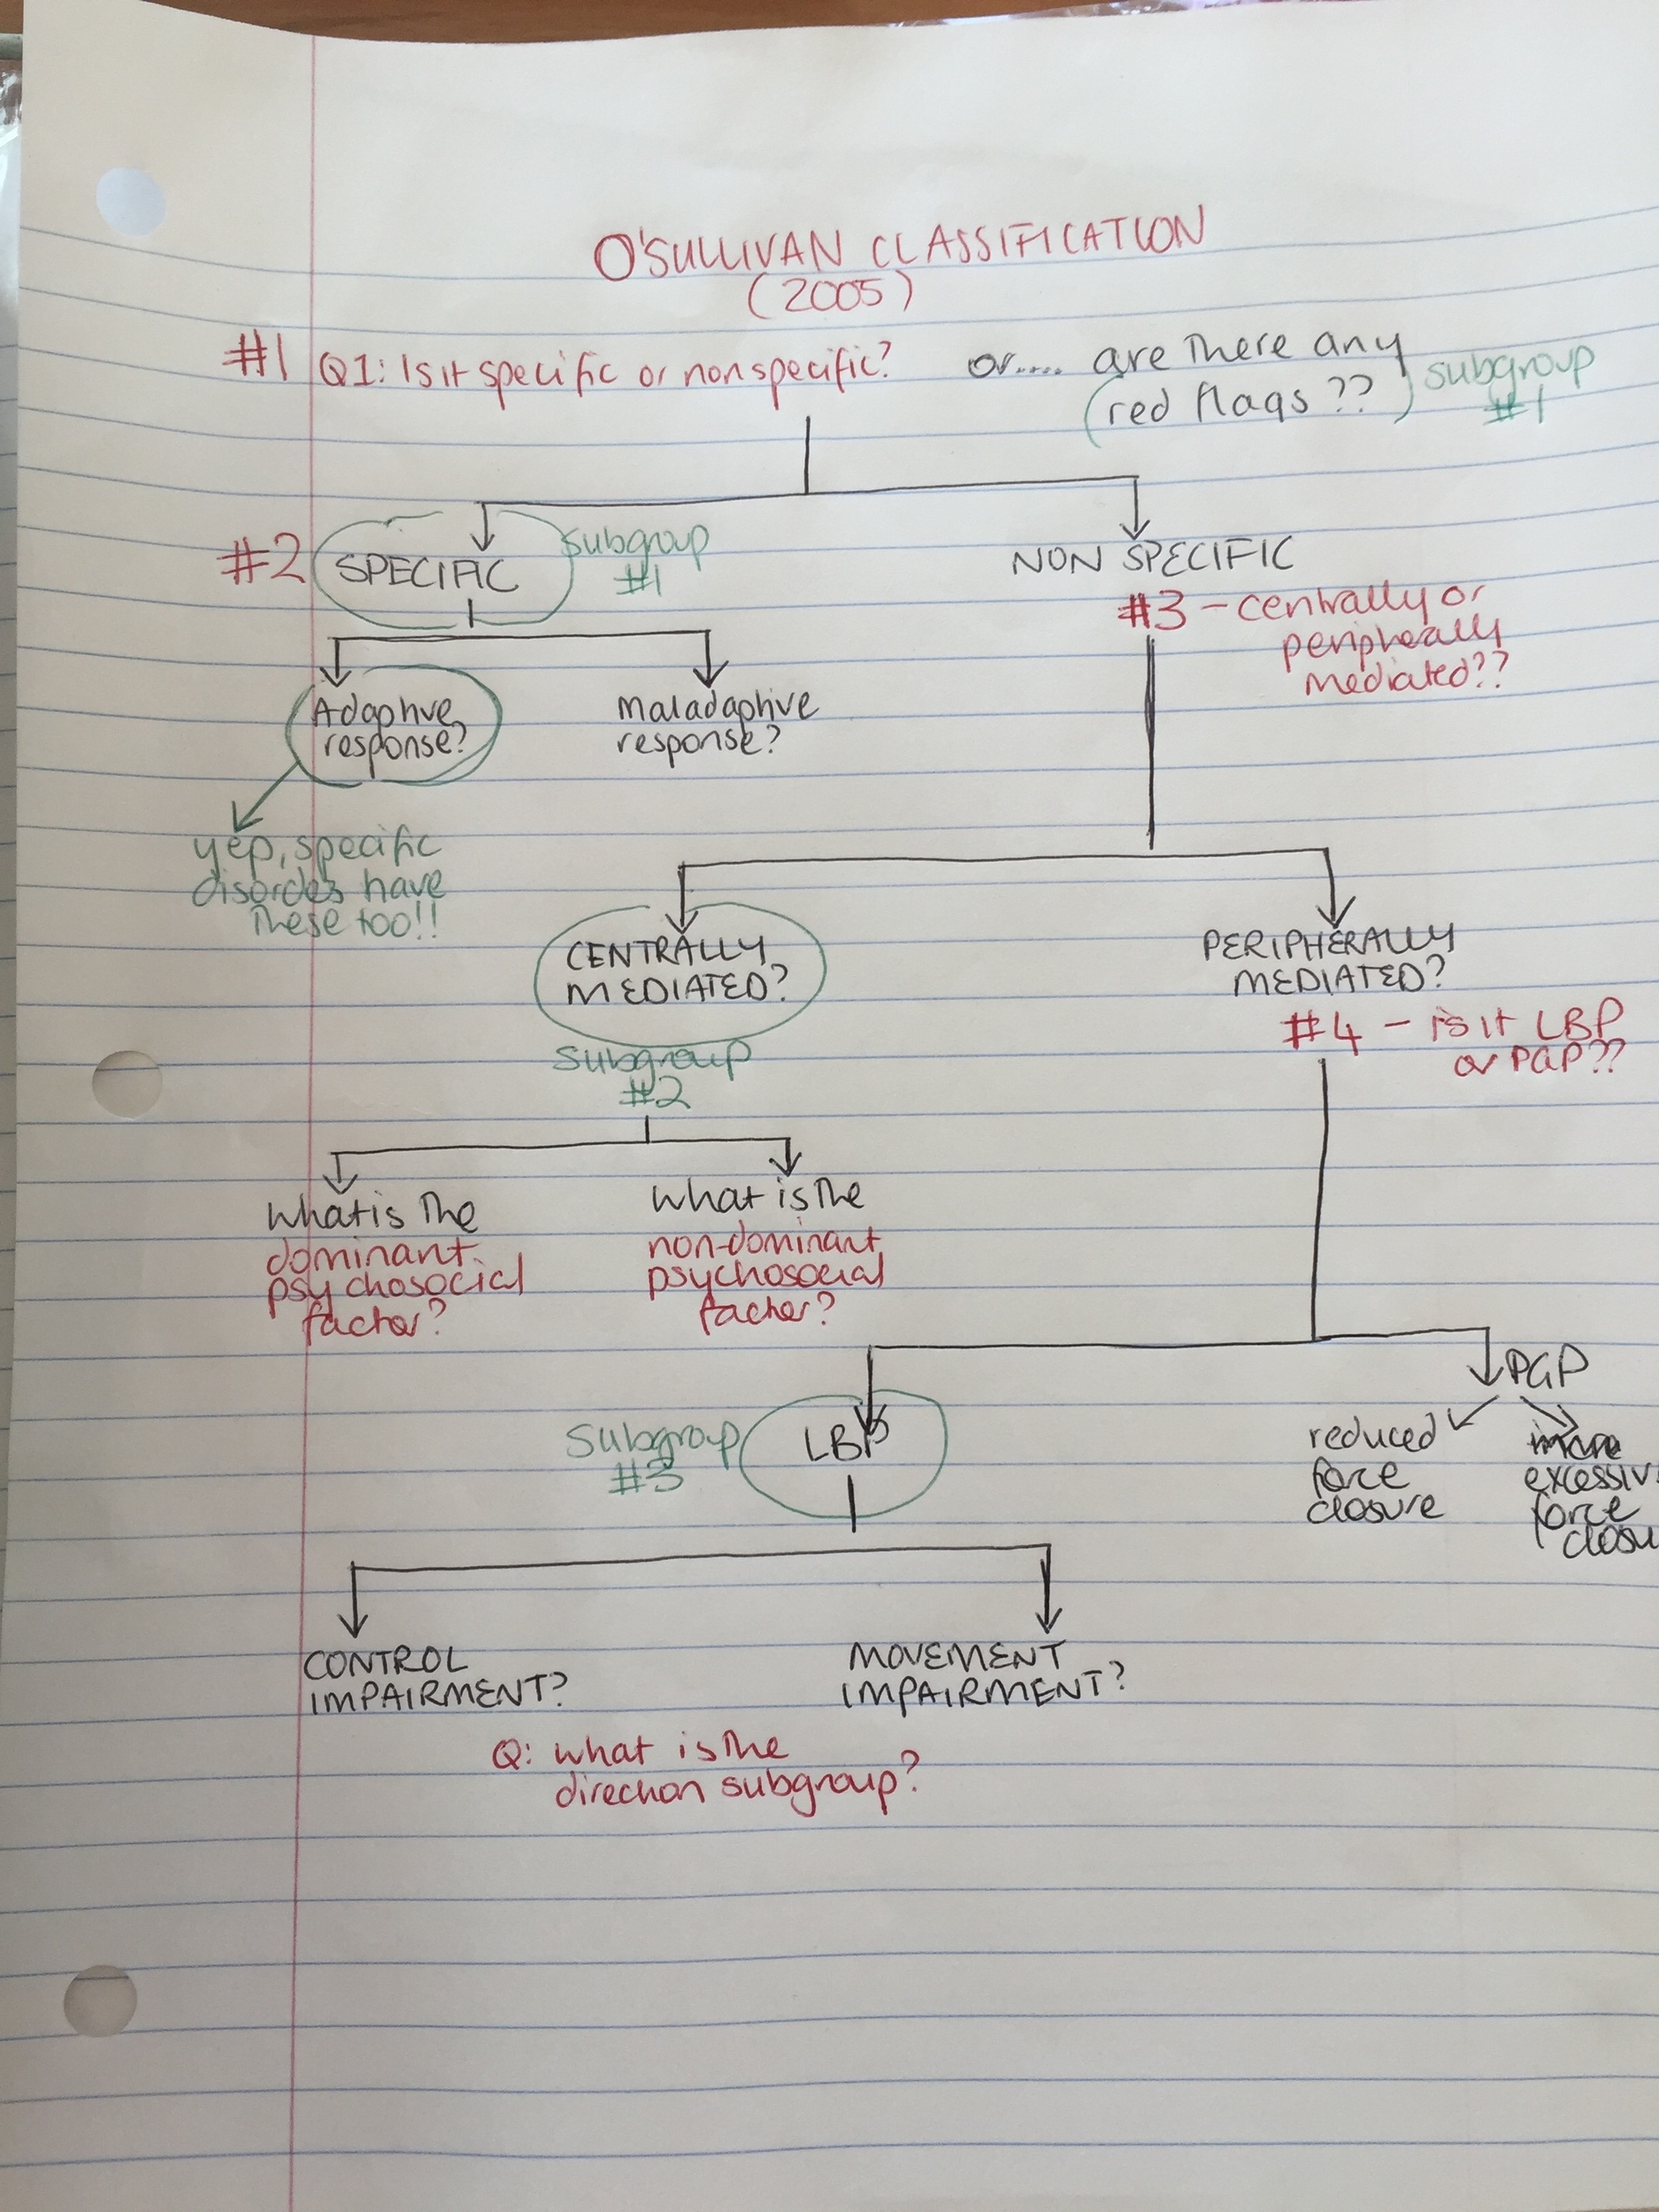 O'SULLIVAN CLASSIFICATION
(2005)
#1 Q1: Is it specific or nonspecific? or.... are there any
(red flags ??) subgroup
#1
#2 SPECIFIC subgroup
#1
NON SPECIFIC
#3 - centrally or
peripherally
mediated??
Adaptive
response?
Maladaptive
response?
yep, specific
disordes have
these too!!
CENTRALLY
MEDIATED?
subgroup
#2
PERIPHERALLY
MEDIATED?
#4 - is it LBP
or PGP??
What is the
dominant
psychosocial
factor?
What is the
non-dominant
psychosocial
factor?
PGP
reduced
force
closure
excessiv
force
closu
subgroup
#3
LBP
CONTROL
IMPAIRMENT?
MOVEMENT
IMPAIRMENT?
Q: what is the
direction subgroup?